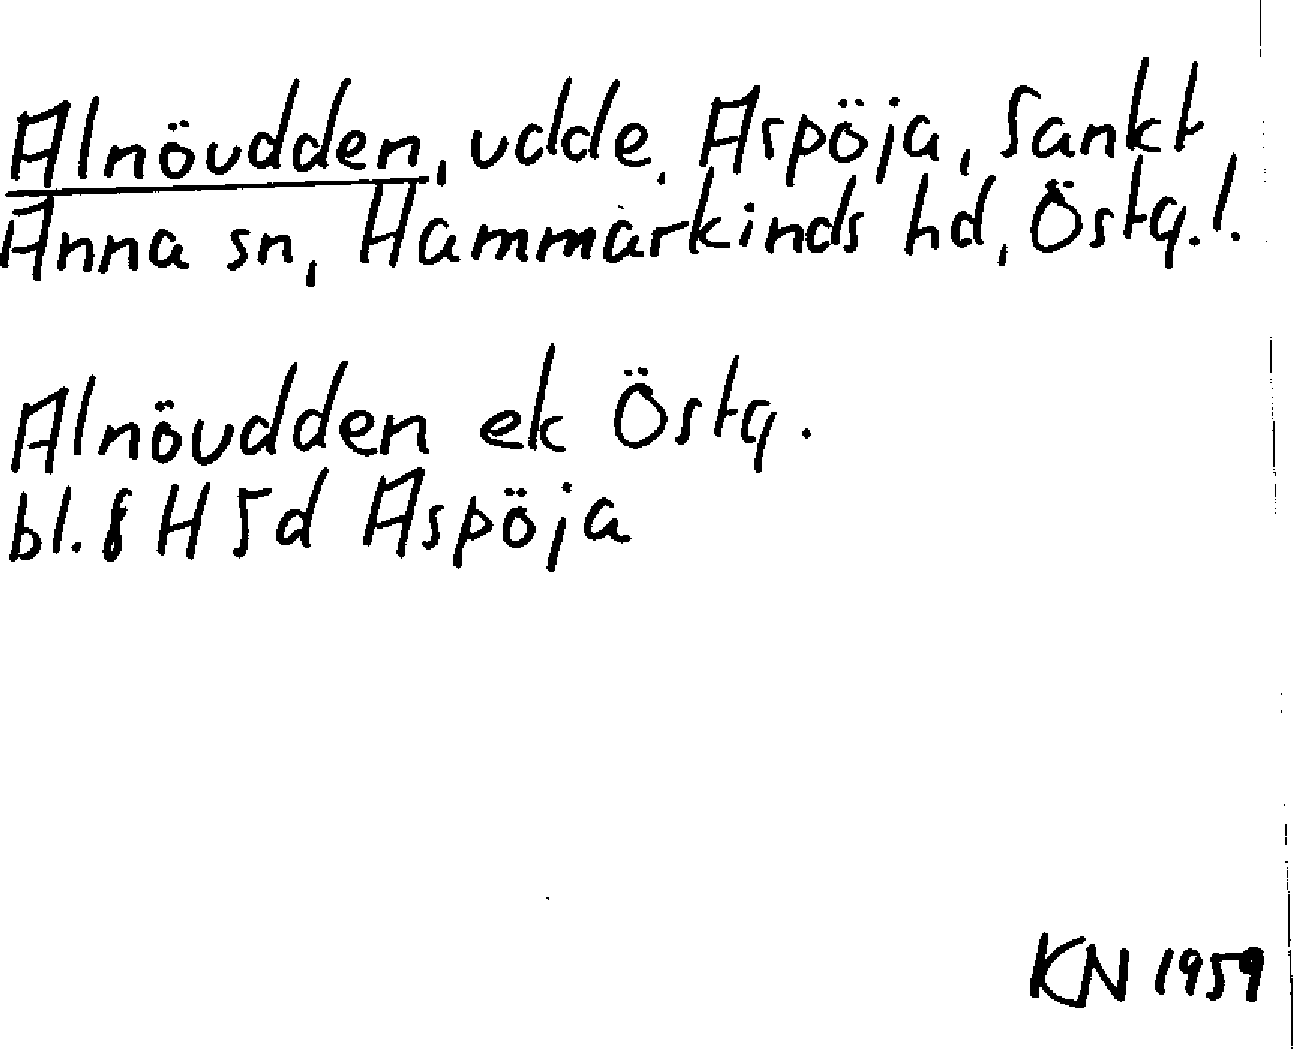 Alnöudden, udde, Aspöja, Sankt
Anna sn, Hammarkinds hd, Östg.l.
Alnöudden ek Östg.
bl. 8 H 5d Aspöja
KN 1959